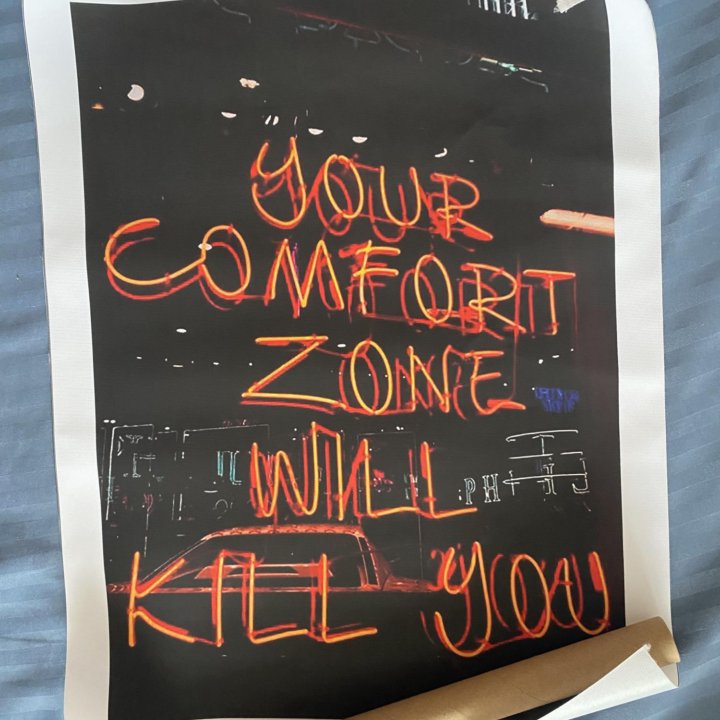 YOUR
COMFORT
ZONE
WILL
PH
KILL YOU